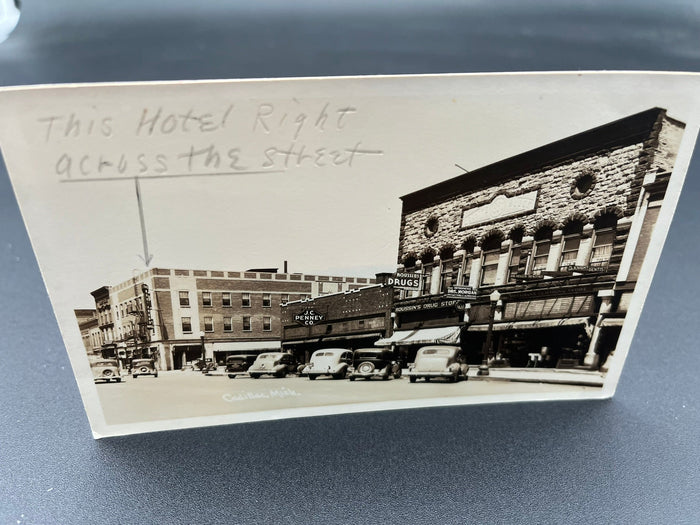 This Hotel Right
across the street
ROUSSIN'S
DRUGS
J.C.
PENNEY
CO.
ROUSSIN'S DRUG STORE
DRS. MORGAN
DENTISTS
Cadillac, Mich.